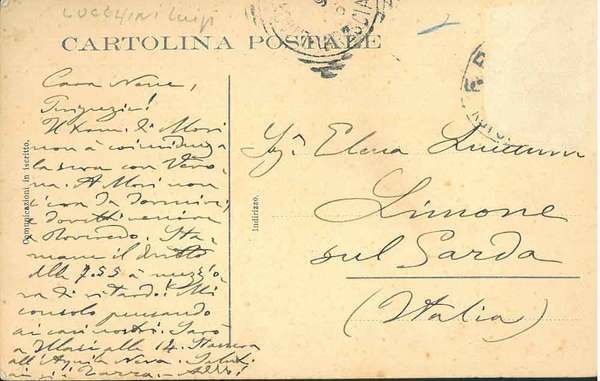 LUCCHINI Luigi
CARTOLINA POSTALE
Comunicazioni in iscritto.
Cara Nene,
Disgrazia!
Il tram di Mori
non à coincidenza
la sera con Vero-
na. A Mori non
c'era da dormire,
e dovetti venire
a Rovereto. Sta-
mane il diretto
delle 7.55 à mezz'o-
ra di ritardo! Mi
consolo pensando
ai casi nostri. Sarò
a alle 14. Stasera
all'Aquila Nera. Saluti
Indirizzo.
Sig.ª Elena
Limone
sul Garda
(Italia)